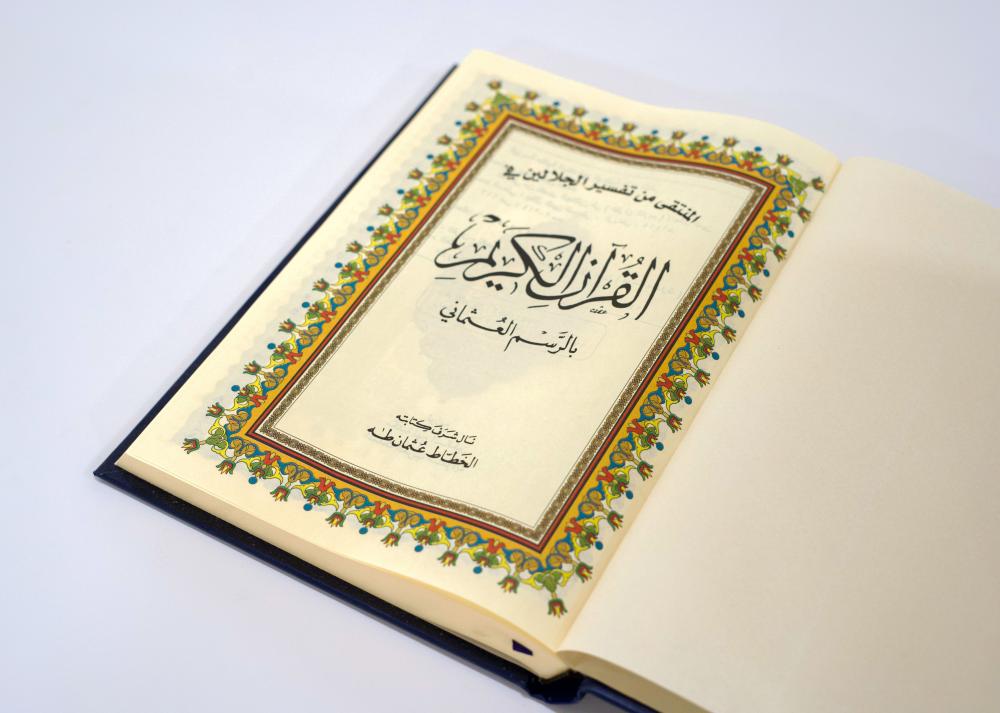 المنتقى من تفسير الجلالين في
القُرآن الكَرِيم
بالرَّسْم العُثماني
نال شرَف كتابته
الخَطّاط عُثمان طه